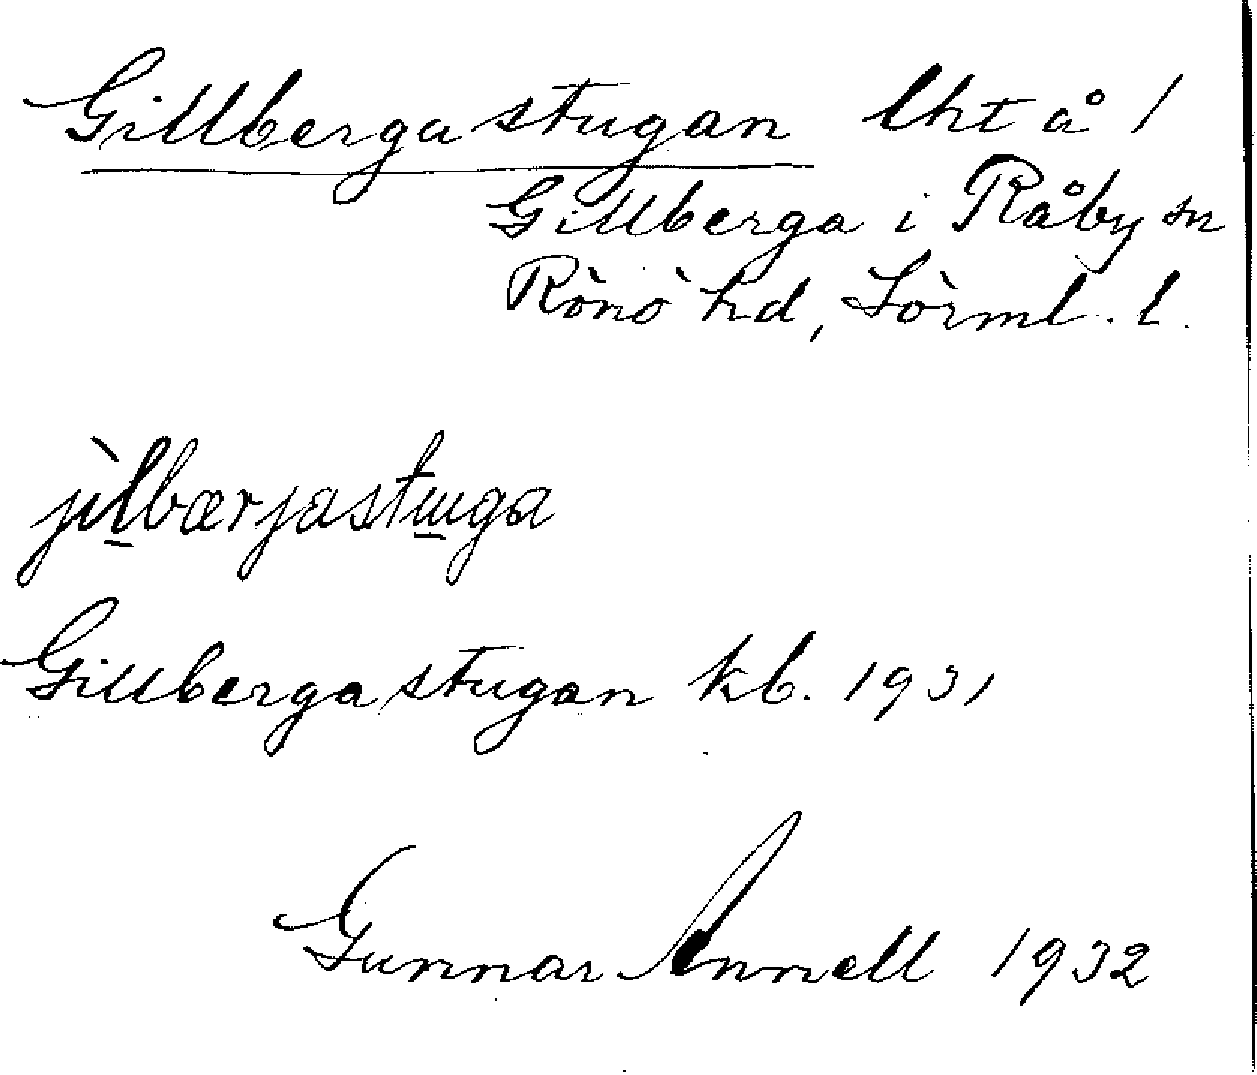 Gillbergastugan lht å /
Gillberga i Råby sn
Rönö hd, Sörml. l.
jìlbærjastuga
Gillbergastugan kb. 1931
Gunnar Annell 1932